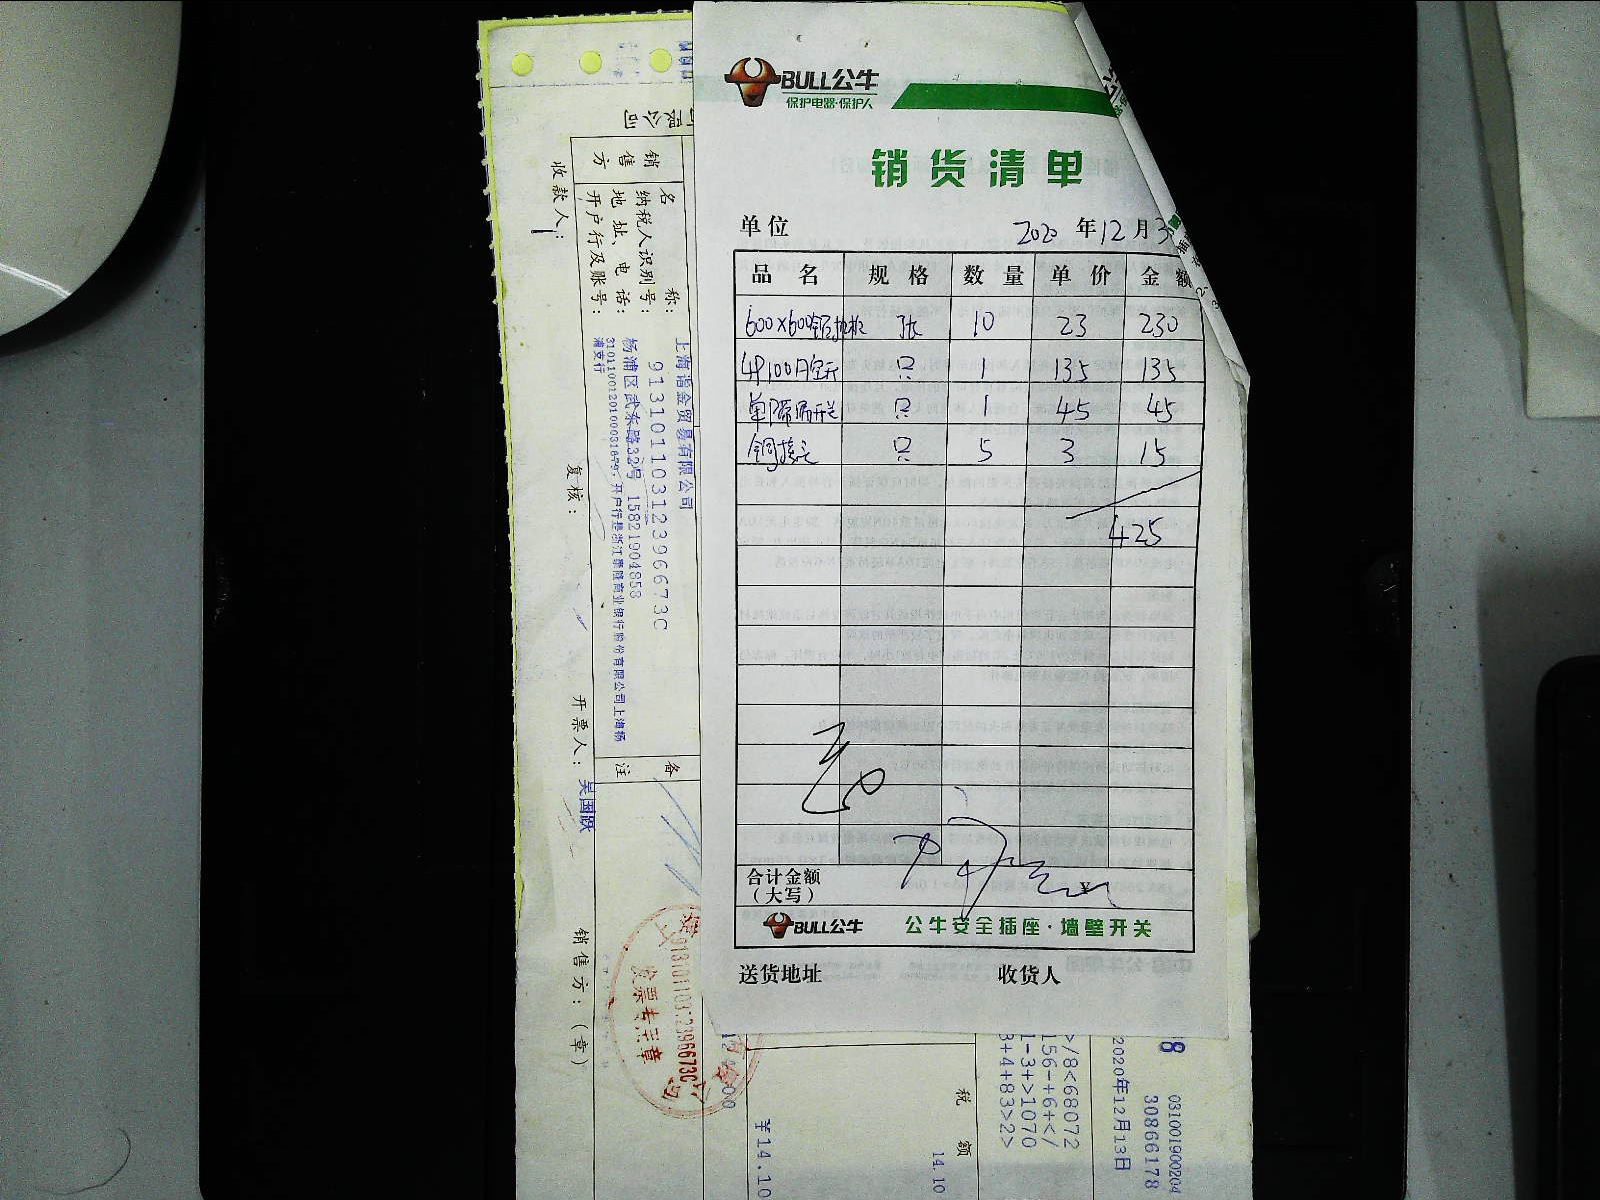 BULL公牛
保护电器·保护人
销货清单
单位 2020 年 12 月 3
品名 规格 数量 单价 金额
600×600铝扣板 张 10 23 230
4P100A空开 只 1 135 135
单隔漏开关 只 1 45 45
铜接头 只 5 3 15
425
合计金额
(大写) ¥
BULL公牛 公牛安全插座·墙壁开关
送货地址 收货人
限公司
销售方
名称: 上海谐金贸易有限公司
纳税人识别号: 91310110312396673C
地址、电话: 杨浦区武东路32号 15821904853
开户行及账号: 开户行是浙江泰隆商业银行股份有限公司上海杨
浦支行
备注
收款人:
复核:
开票人: 吴国跃
销售方:(章)
91310110312396673C
发票专用章
税额
14.10
¥14.10
>/8<68072
156-+6+</
1-3+>1070
3+4+83>2>
031001900204
30866178
2020年12月13日